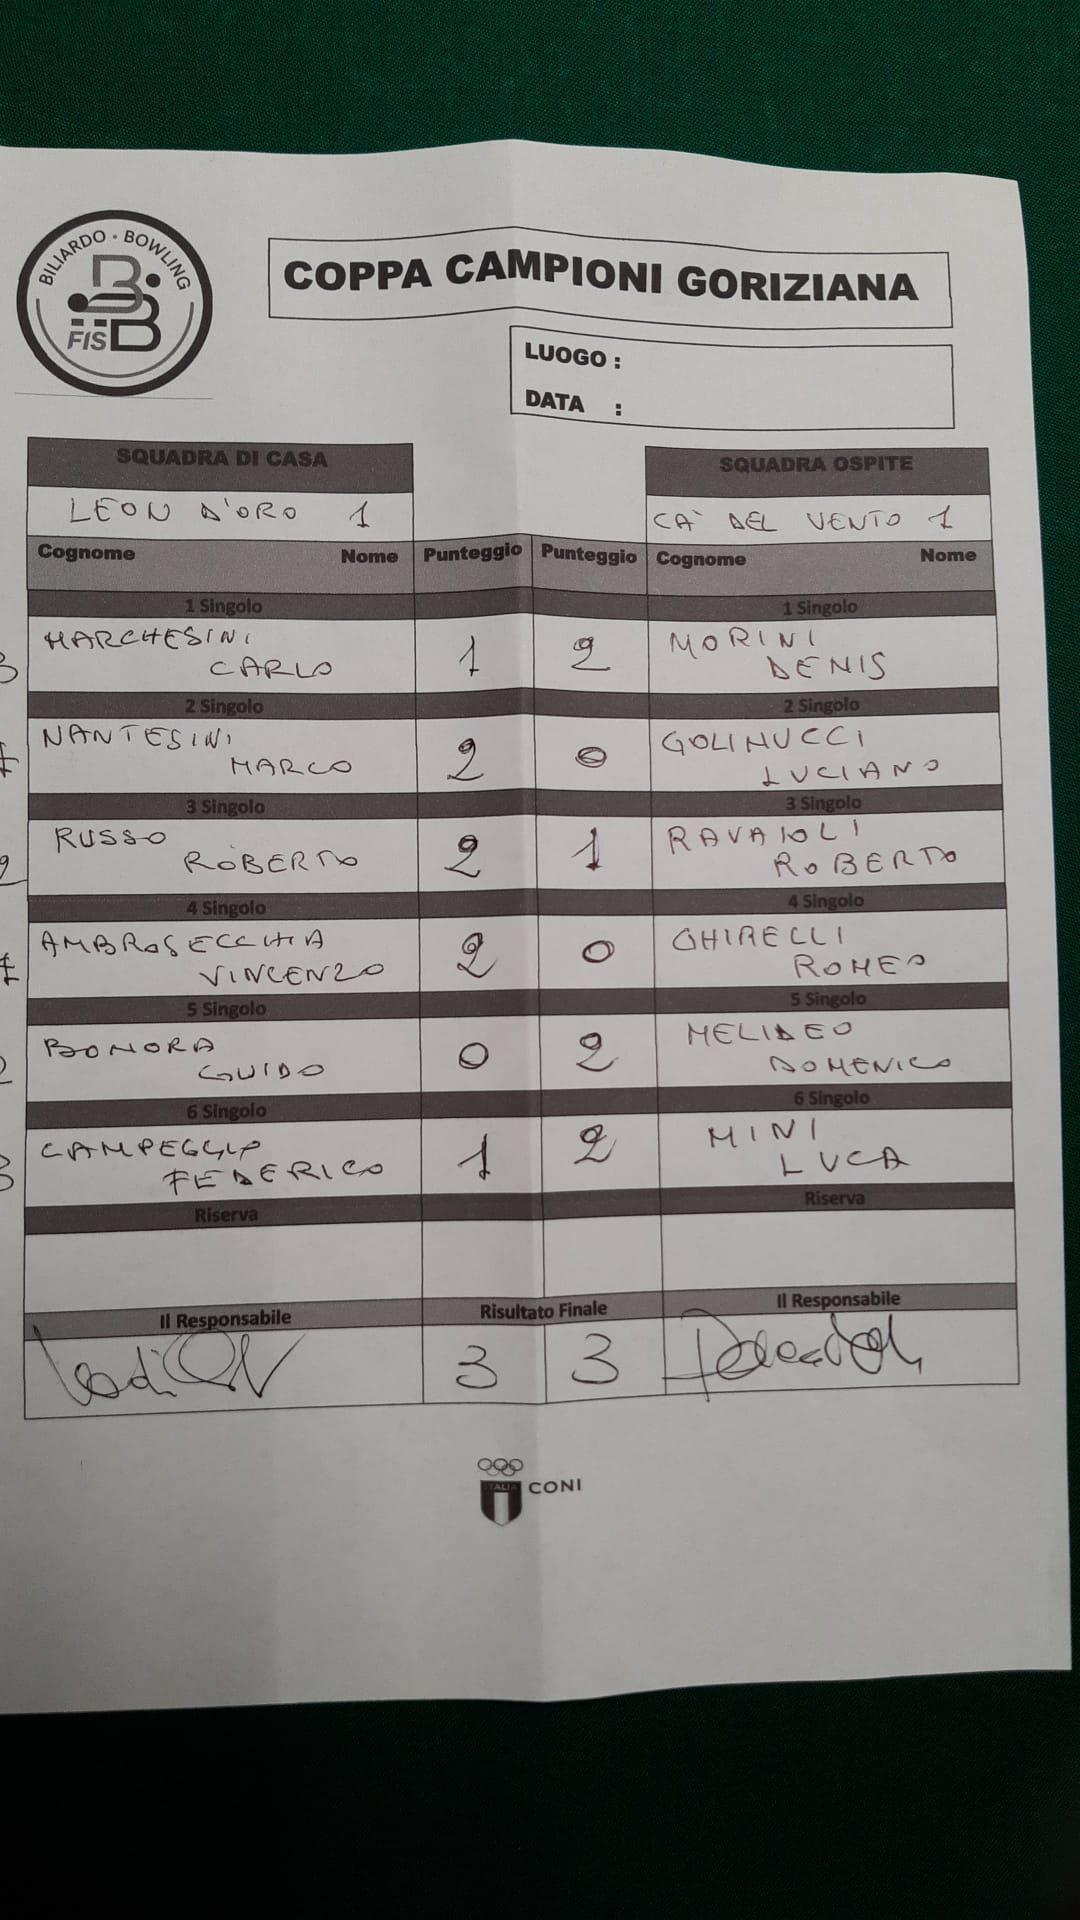 BILIARDO · BOWLING
FISBB
COPPA CAMPIONI GORIZIANA
LUOGO :
DATA :
SQUADRA DI CASA SQUADRA OSPITE
LEON D'ORO 1 CA' DEL VENTO 1
Cognome Nome Punteggio Punteggio Cognome Nome
1 Singolo 1 Singolo
MARCHESINI 1 2 MORINI
CARLO DENIS
2 Singolo 2 Singolo
NANTESINI 2 0 GOLINUCCI
MARCO LUCIANO
3 Singolo 3 Singolo
RUSSO 2 1 RAVAIOLI
ROBERTO ROBERTO
4 Singolo 4 Singolo
AMBROSECCHIA 2 0 GHIRELLI
VINCENZO ROMEO
5 Singolo 5 Singolo
BONORA 0 2 MELIDEO
GUIDO DOMENICO
6 Singolo 6 Singolo
CAMPEGGIO 1 2 MINI
FEDERICO LUCA
Riserva Riserva
Il Responsabile Risultato Finale Il Responsabile
3 3
ITALIA
CONI